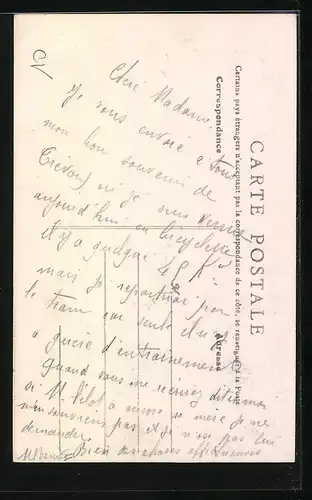 CARTE POSTALE
Certains pays étrangers n'acceptant pas la correspondance de ce côté, se renseigner à la Poste
Correspondance
Adresse
Chère Madame
Je vous envoie à tous
mon bon souvenir de
Trevoux où je suis venue
aujourd'hui en bicyclette
il y a quelque
mais je repartirai par
le tram car seule et
à guère d'entrainement
Quand vous me écrirez dites moi
si M. a encore sa mère je ne
m'en souviens pas et je n'ose pas lui
demander.
Bien des choses affectueuses